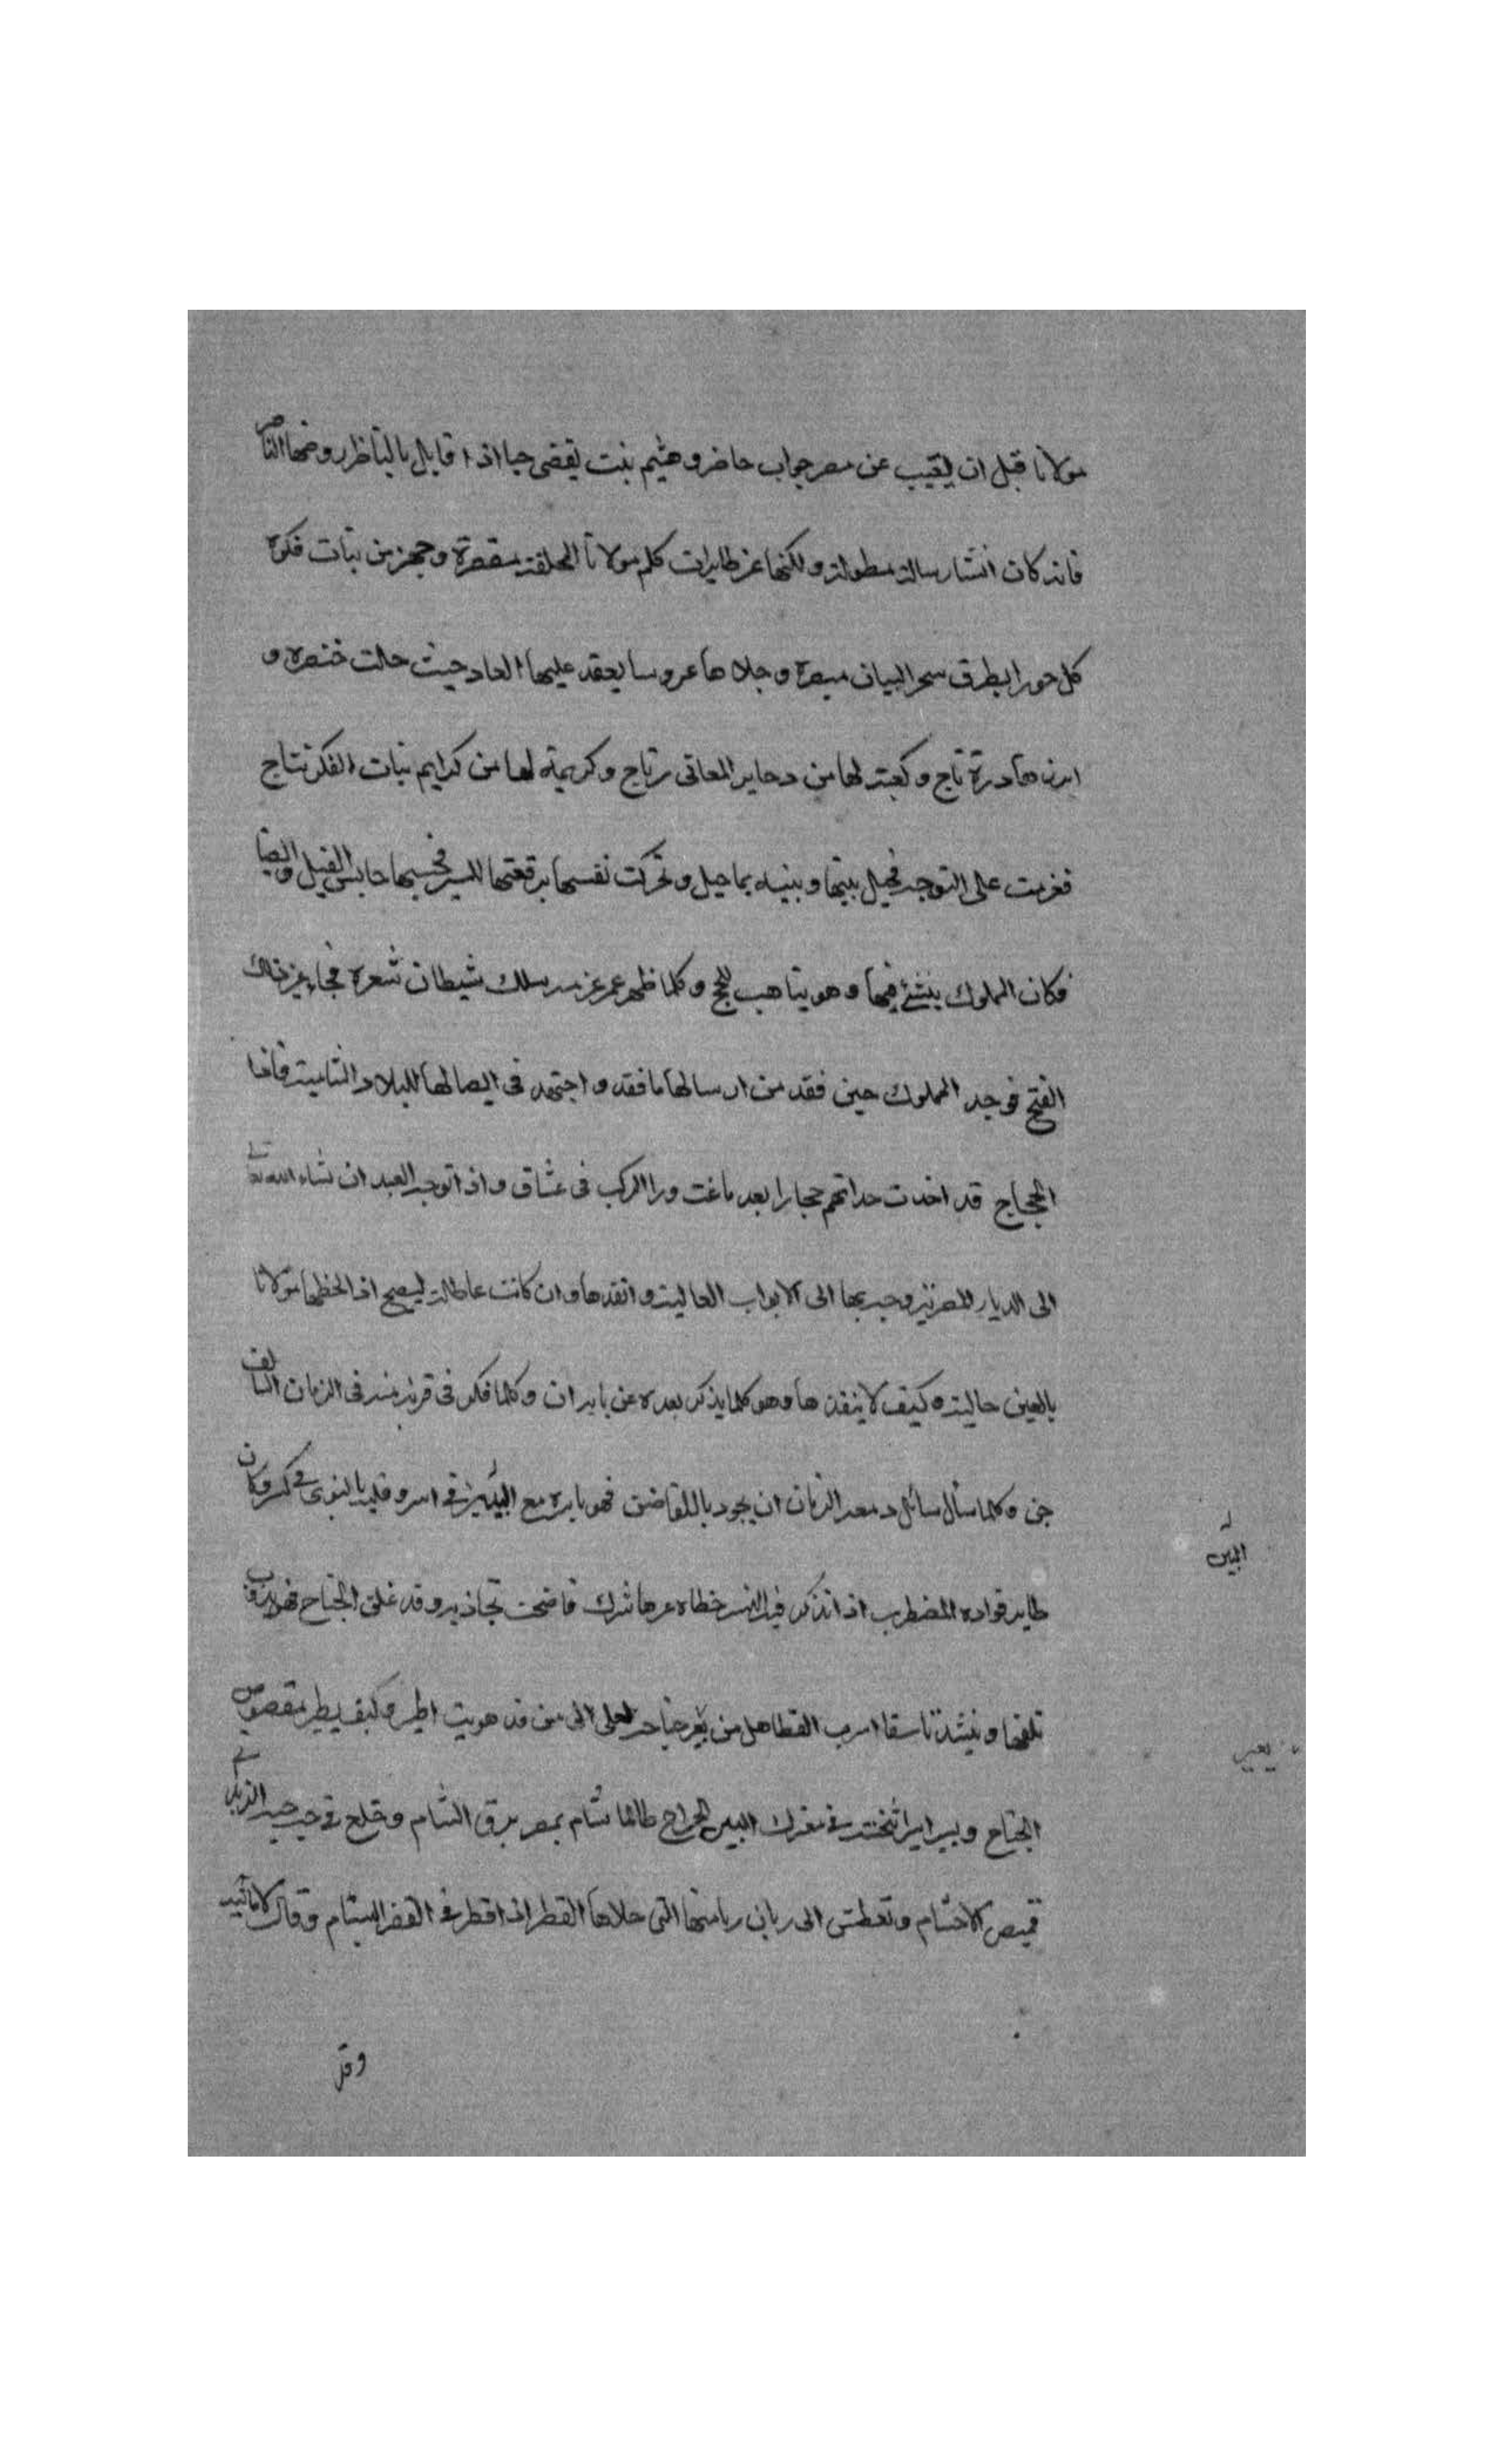 مولانا قبل ان يغيب عن مصر جواب حاضر وهشيم بنت يقضى حيا اذا قابل بالناظر روضها الناضر
فانه كان انشا رسالة مطولة ولكنها عن طايرات كلم مولانا المحلقة مقصرة وجهز من بنات فكره
كل حورا بطرف سحر البيان مبصرة وجلاها عروسا يعقد عليها العاد حيث حلت خنصره و
ابرزها درة تاج وكعبة لها من المعانى رتاج وكريمة لها من كرايم بنات الفكر نتاج
فعزمت على التوجه فحيل بينها وبينه بما حيل وتحركت نفسها برقعتها للسير فحبسها حابس الفيل
فكان المملوك ينشئ فيها وهو يتاهب للحج وكلما ظهر عمر عزمه سلك شيطان شعره فجا
الفتح فوجد المملوك حين فقد من ارسالها ما فقد واجتهد فى ايصالها للبلاد الشامية فاذا
الحجاج قد اخذت حداتهم حجازا بعد ما غنت ورا الركب فى عشاق واذا توجه العبد ان شاء الله تعالى
الى الديار المصرية وجه بها الى الابواب العالية وانفذها وان كانت عاطلة ليصبح اذا لحظها مولانا
بالعين حالية وكيف لا ينفذها وهو كلما يذكر بعده عن بابه ان وكلما فكر فى قربه منه فى الزمان السالف
جن وكلما سأل سائل دمعه الزمان ان يجود باللقا ضن فهو باسره مع البين فى اسر وقلبه بالنوى فى كسر وكان
طاير فواده المضطرب اذا تذكر فيه النسر خطاه عزها شرك فاضحت تجاذبه وقد علق الجناح فهو يرقب
تلفها وينشد تاسفا اسرب القطا هل من يعير جناحه لعلى الى من قد هويت اطير وكيف يطير مقصوص
الجناح ويسير اسير اثخنته فى معرك البين الجراح طالما شام بمصر برق الشام وخلع فى حب حبه الذكى
قميص الاحتشام وتعطش الى ريان رياضها التى حلاها القطر اذا قطر فى الثغر البشام وقال
البين
يعير